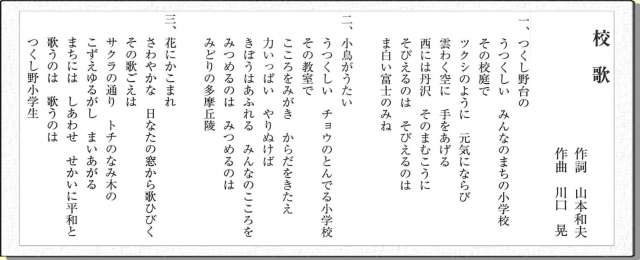 校歌
作詞　山本和夫
作曲　川口　晃
一、つくし野台の
うつくしい　みんなのまちの小学校
その校庭で
ツクシのように　元気にならび
雲わく空に　手をあげる
西には丹沢　そのまむこうに
そびえるのは　そびえるのは
ま白い富士のみね
二、小鳥がうたい
うつくしい　チョウのとんでる小学校
その教室で
こころをみがき　からだをきたえ
力いっぱい　やりぬけば
きぼうはあふれる　みんなのこころを
みつめるのは　みつめるのは
みどりの多摩丘陵
三、花にかこまれ
さわやかな　日なたの窓から歌ひびく
その歌ごえは
サクラの通り　トチのなみ木の
こずえゆるがし　まいあがる
まちには　しあわせ　せかいに平和と
歌うのは　歌うのは
つくし野小学生